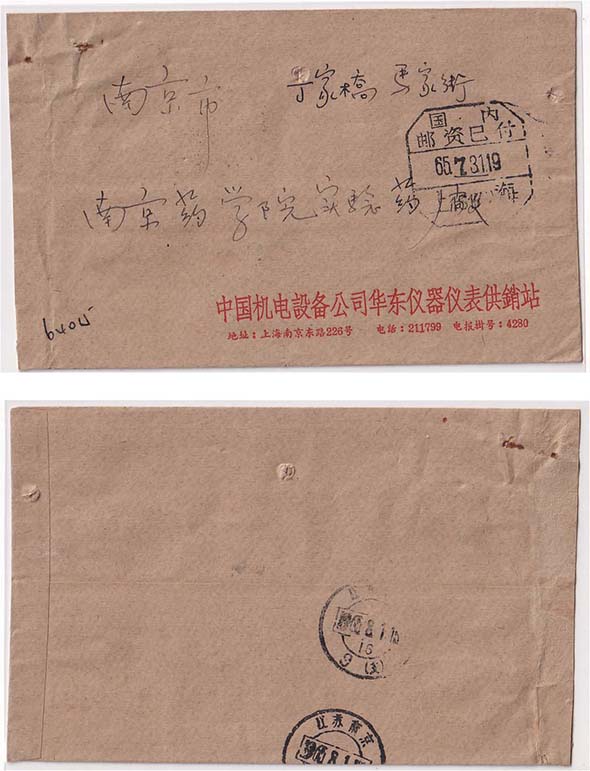 南京市 丁家橋 馬家街
国 内
邮资已付
65.7.31.19
上 海
南京药学院实验药
中国机电設备公司华东仪器仪表供銷站
地址：上海南京东路226号 电話：211799 电报掛号：4280
8.1
16
9 (支)
江苏南京
8.1